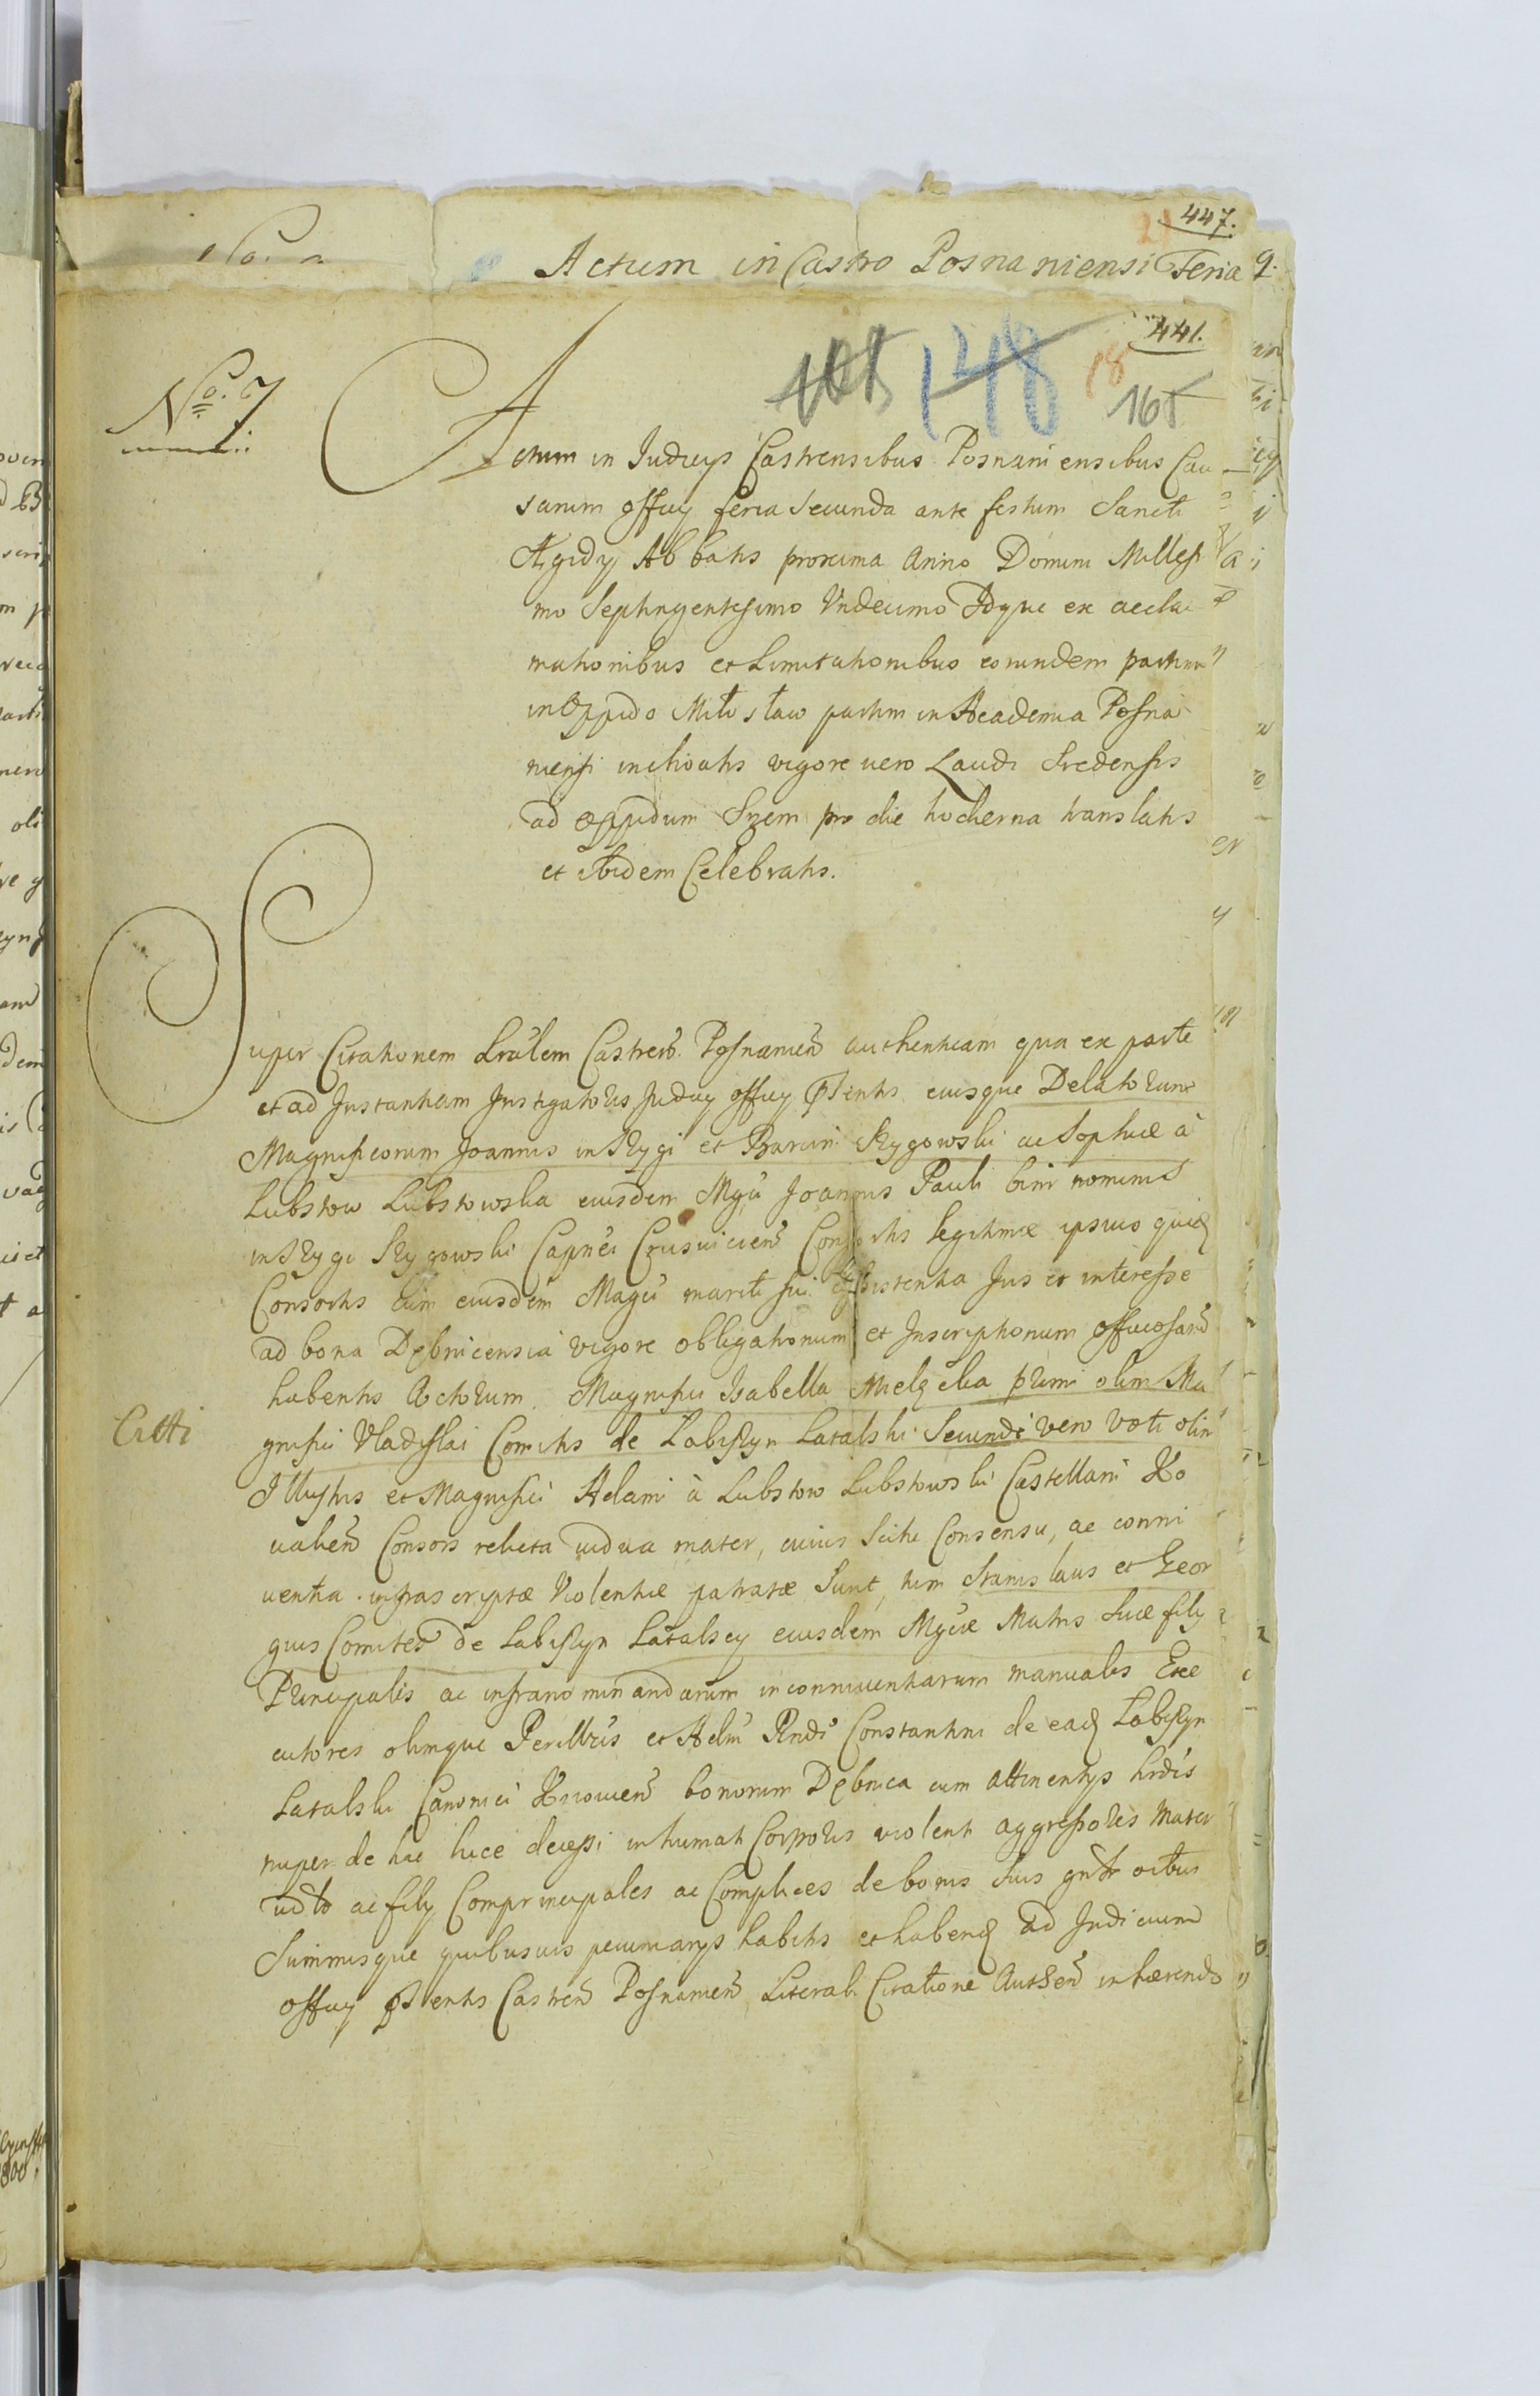 447.
Actum in Castro Posnaniensi Feria
441.
148
18
Nº. 7
Actum in Judicijs Castrensibus Posnaniensibus Cau
sarum officij feria Secunda ante festum Sancti
Ægidij Abbatis proxima Anno Domini Millesi
mo Septingentesimo Undecimo Idque ex accla
mationibus et Limitationibus eorundem partim
in Oppido Miłosław partim in Academia Posna
niensi inchoatis vigore vero Laudi Sredensis
ad oppidum Szrem pro die hodierna translatis
et ibidem Celebratis.
Super Citationem Lrâlem Castren̄ Posnanien̄ authenticam qua ex parte
et ad Instantiam Instigatoris Judicij officij pntis eiusque Delatorum
Magnificorum Joannis in Rygi et Rygowski ac Sophiæ à
Lubstow Lubstowska eiusdem Mgci Joannis Pauli bini nominis
in Rygi Rygowski Capnei Crusvicien̄ Consortis legitimæ ipsius quidem
Consortis cum eiusdem Magci mariti sui assistentia Jus et interesse
ad bona Dębnicensia vigore obligationum et Inscriptionum officiosarum
habentis Actorum. Magnifici Isabella Mielęcka primi olim Ma
Citti
gnifici Vladislai Comitis de Labiszyn Latalski Secundi vero voti olim
Illustris et Magnifici Adami à Lubstow Lubstowski Castellani Ko
valien̄ Consors relicta vidua mater, cuius Scitu Consensu, ac conni
ventia infrascriptæ Violentiæ patratæ sunt, tum Stanislaus et Geor
gius Comites de Labiszyn Latalscy eiusdem Mgcæ Matris suæ filij
Principalis ac infranominandarum inconniventiarum manuales Exe
cutores olimque Perillris et Adm Rndi Constantini de eadem Labiszyn
Latalski Canonici bonorum Dębnica cum attinentijs hrdis
nuper de hac luce decessi inhumati Corporis violenti aggressores Mater
ut ac filij Comprincipales ac Complices de bonis suis gntr oibus
Summisque quibusvis pecuniarijs habitis et habendis ad Judicium
officij pntis Castren̄ Posnanien̄ Literali Citatione Authen̄ inhærendo